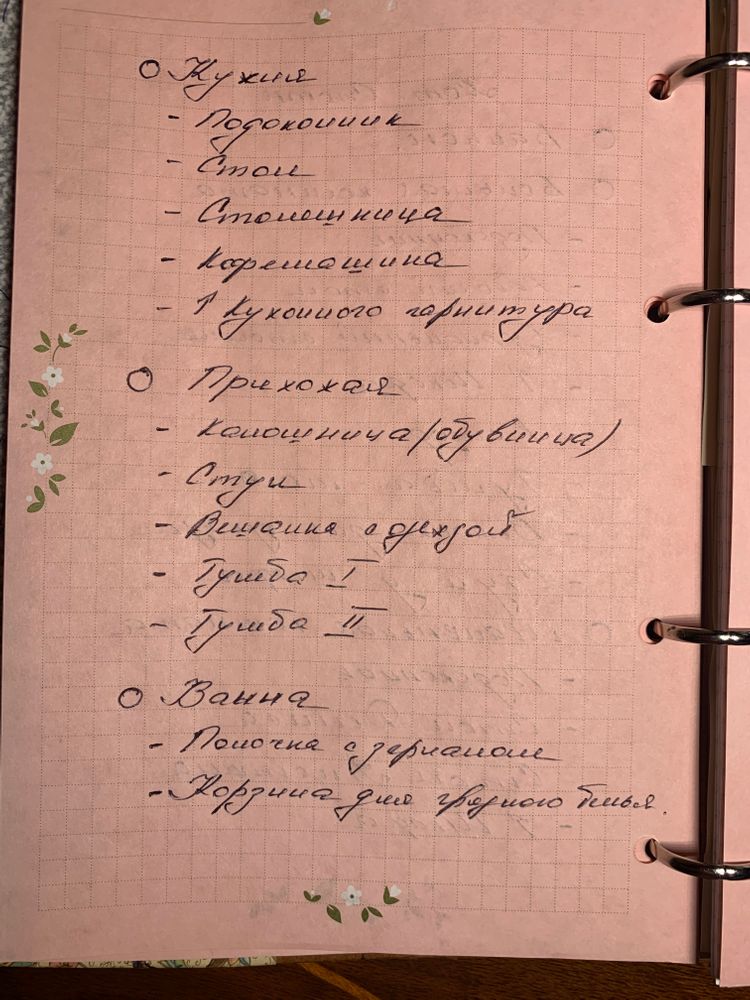 Кухня
- Подоконник
- Стол
- Столешница
- Кофемашина
- ↑ Кухонного гарнитура
Прихожая
- Калошница (обувница)
- Стул
- Вешалка с одеждой
- Тумба I
- Тумба II
Ванна
- Полочка с зеркалом
- Корзина для грязного белья.